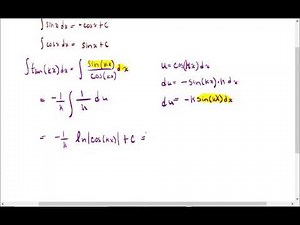 ∫sinx dx = -cosx + C
∫cosx dx = sinx + C
∫tan(kx)dx = ∫ sin(kx)/cos(kx) dx
u = cos(kx)dx
du = -sin(kx)·k dx
= -1/k ∫ 1/u du
du = -k sin(kx)dx
= -1/k ln|cos(kx)| + C =